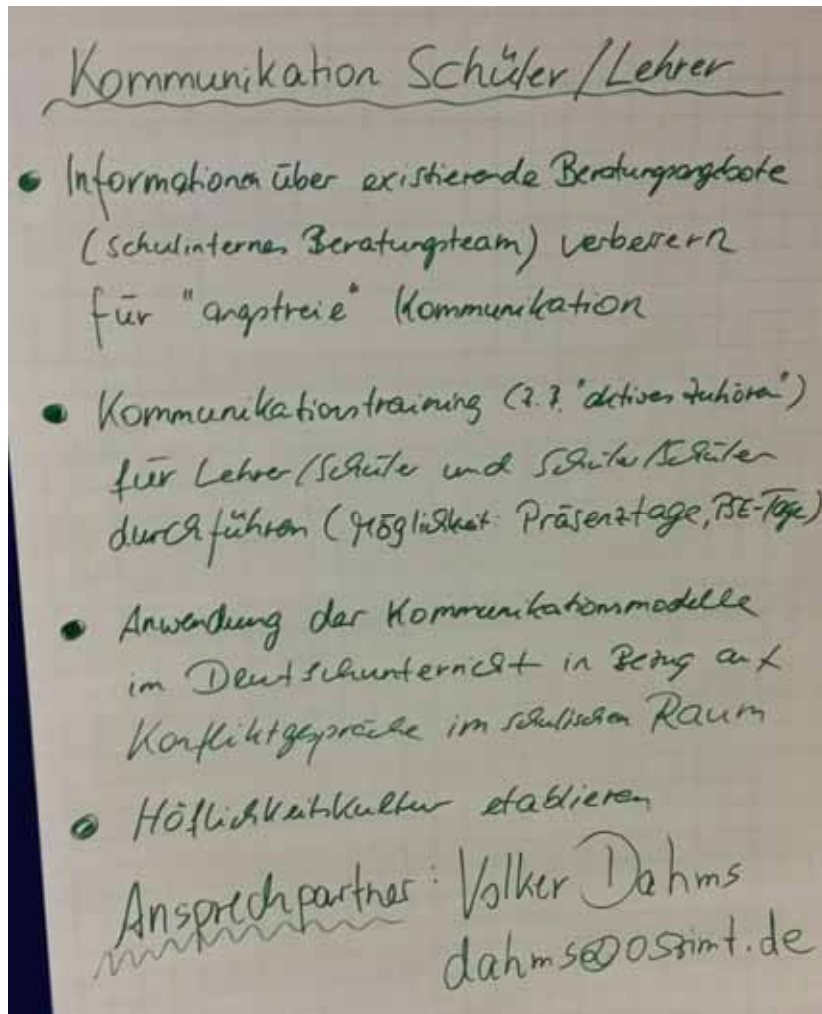 Kommunikation Schüler/Lehrer
• Informationen über existierende Beratungsangebote
(schulinternes Beratungsteam) verbessern
für "angstfreie" Kommunikation
• Kommunikationstraining (z.B. "aktives Zuhören")
für Lehrer/Schüler und Schüler/Schüler
durchführen (Möglichkeit: Präsenztage, PSE-Tage)
• Anwendung der Kommunikationsmodelle
im Deutschunterricht in Bezug auf
Konfliktgespräche im schulischen Raum
• Höflichkeitskultur etablieren
Ansprechpartner: Volker Dahms
dahms@oszimt.de